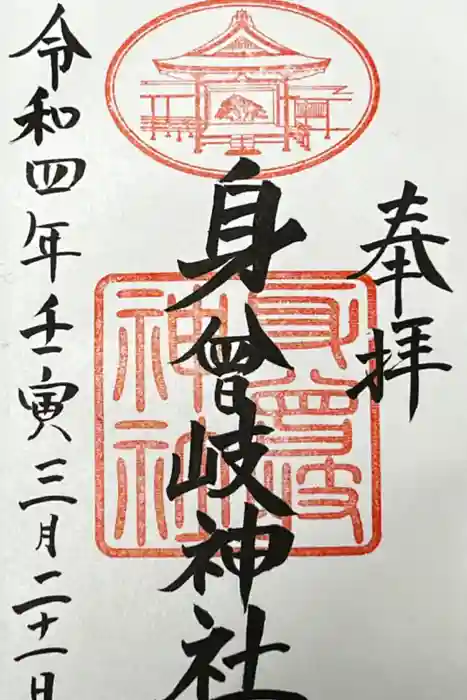 奉拝
身曾岐神社
令和四年壬寅三月二十一日
身曾岐
神社